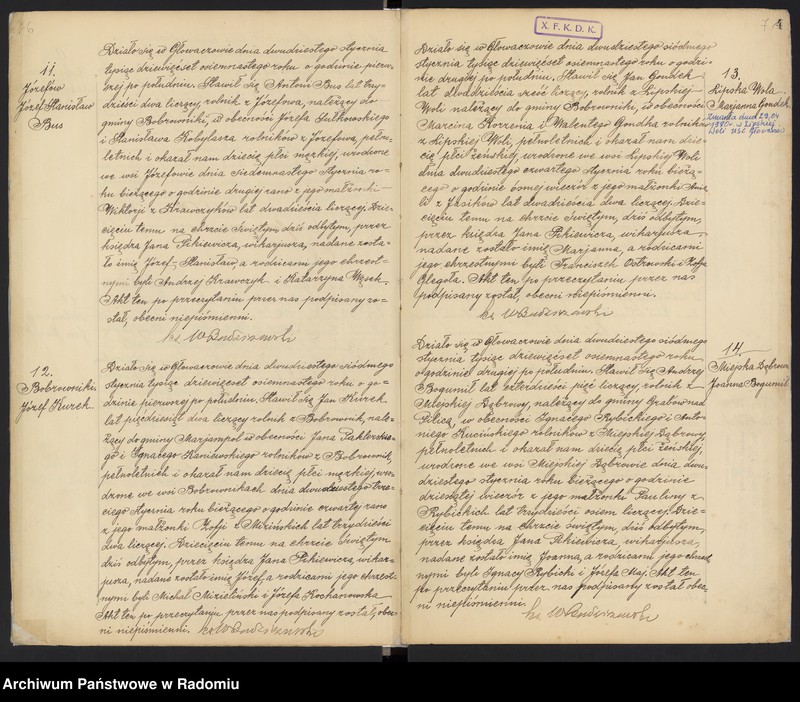 11.
Józefów
Józef Stanisław
Bus
Działo się w Głowaczowie dnia dwudziestego stycznia
tysiąc dziewięćset osiemnastego roku o godzinie pierw-
szej po południu. Stawił się Antoni Bus lat trzy-
dzieści dwa liczący, rolnik z Józefowa, należący do
gminy Bobrowniki, w obecności Józefa Sutkowskiego
i Stanisława Kobylarza rolników z Józefowa, pełno-
letnich i okazał nam dziecię płci męzkiej, urodzone
we wsi Józefowie dnia siedemnastego stycznia ro-
ku bieżącego o godzinie drugiej rano z jego małżonki
Wiktorji z Krawczyków lat dwadzieścia liczącej. Dzie-
cięciu temu na chrzcie świętym, dziś odbytym, przez
księdza Jana Pikiewicza, wikarjusza, nadane zosta-
ło imię Józef-Stanisław a rodzicami jego chrzest-
nymi byli Andrzej Krawczyk i Katarzyna Wąsek.
Akt ten po przeczytaniu przez nas podpisany zo-
stał, obecni niepiśmienni.
12.
Bobrowniki
Józef Kurek
Działo się w Głowaczowie dnia dwudziestego siódmego
stycznia tysiąc dziewięćset osiemnastego roku o go-
dzinie pierwszej po południu. Stawił się Jan Kurek
lat pięćdziesiąt dwa liczący rolnik z Bobrownik, nale-
żący do gminy Marjampol w obecności Jana
i Ignacego Kaniewskiego rolników z Bobrownik,
pełnoletnich i okazał nam dziecię płci męzkiej, uro-
dzone we wsi Bobrownikach dnia dwudziestego trze-
ciego stycznia roku bieżącego o godzinie czwartej rano
z jego małżonki Zofji z Mizińskich lat trzydzieści
dwa liczącej. Dziecięciu temu na chrzcie świętym
dziś odbytym, przez księdza Jana Pikiewicza, wikar-
jusza, nadane zostało imię Józef, a rodzicami jego chrzest-
nymi byli Michał Mizieliński i Józefa Kochanowska
Akt ten po przeczytaniu przez nas podpisany został, obec-
ni niepiśmienni.
X. F. K. D. K.
Działo się w Głowaczowie dnia dwudziestego siódmego
stycznia tysiąc dziewięćset osiemnastego roku o godzi-
nie drugiej po południu. Stawił się Jan Gondek
lat dwadzieścia sześć liczący, rolnik z Lipskiej-
Woli należący do gminy Bobrowniki, w obecności
Marcina Korzenia i Walentego Gondka rolników
z Lipskiej Woli, pełnoletnich i okazał nam dzie-
cię płci żeńskiej, urodzone we wsi Lipskiej Woli
dnia dwudziestego czwartego stycznia roku bieżą-
cego o godzinie ósmej wieczór z jego małżonki Anie-
li z Jasików lat dwadzieścia dwa liczącej. Dzie-
cięciu temu na chrzcie świętym, dziś odbytym,
przez księdza Jana Pikiewicza, wikarjusza
nadane zostało imię Marjanna, a rodzicami
jego chrzestnymi byli Franciszek Ostrowski i Zofja
Glegoła. Akt ten po przeczytaniu przez nas
podpisany został, obecni niepiśmienni.
13.
Lipska Wola
Marjanna Gondek
Zmarła dnia 29.04
Działo się w Głowaczowie dnia dwudziestego siódmego
stycznia tysiąc dziewięćset osiemnastego roku
o godzinie drugiej po południu. Stawił się Andrzej
Bogumił lat czterdzieści pięć liczący, rolnik z
Miejskiej Dąbrowy, należący do gminy Grabów nad
Pilicą, w obecności Ignacego Rybickiego i Anto-
niego Kucińskiego rolników z Miejskiej Dąbrowy,
pełnoletnich i okazał nam dziecię płci żeńskiej,
urodzone we wsi Miejskiej Dąbrowie dnia dwu-
dziestego stycznia roku bieżącego o godzinie
dziesiątej wieczór z jego małżonki Pauliny z
Rybickich lat trzydzieści osiem liczącej. Dzie-
cięciu temu na chrzcie świętym, dziś odbytym,
przez księdza Jana Pikiewicza, wikarjusza,
nadane zostało imię Joanna, a rodzicami jego chrzest-
nymi byli Ignacy Rybicki i Józefa Maj. Akt ten
po przeczytaniu przez nas podpisany został obec-
ni niepiśmienni.
14.
Miejska Dąbrowa
Joanna Bogumił
Archiwum Państwowe w Radomiu